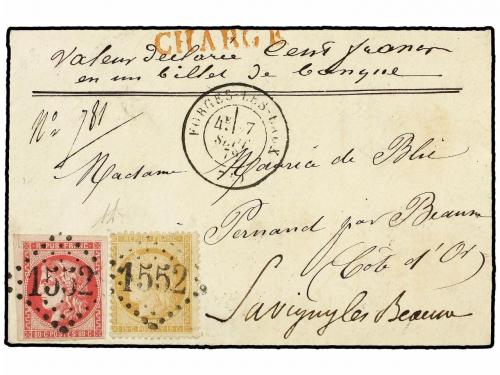 CHARGÉ
Valeur déclarée Cent francs
en un billet de banque
No 781
FORGES-LES-EAUX
4E 7
SEPT.
Madame Maurice de Blic
Pernand par Beaune
Côte d'Or
Savigny les Beaune
1552
1552
80 C. POSTES 80 C.